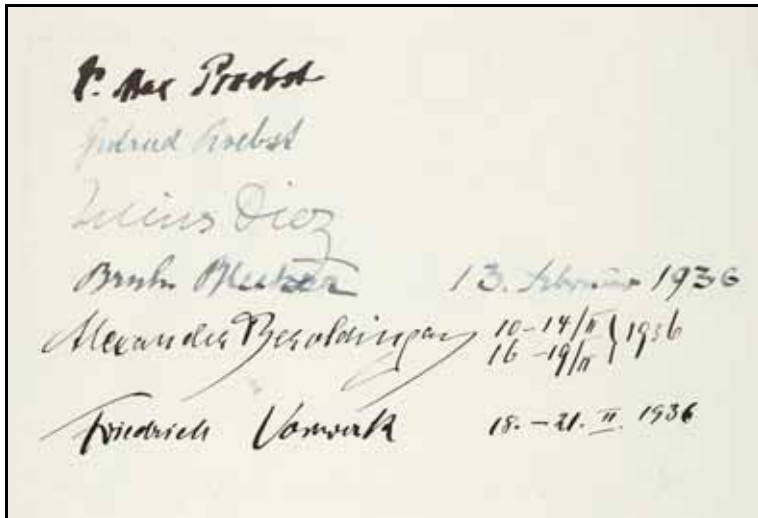 Dr. Max Proebst
Gertrud Proebst
Julius Diez
Bruno Bleeker 13. Februar 1936
Alexander Beroldingen 10–14/II } 1936
16–19/II
Friedrich Vorwerk 18.–21. II. 1936